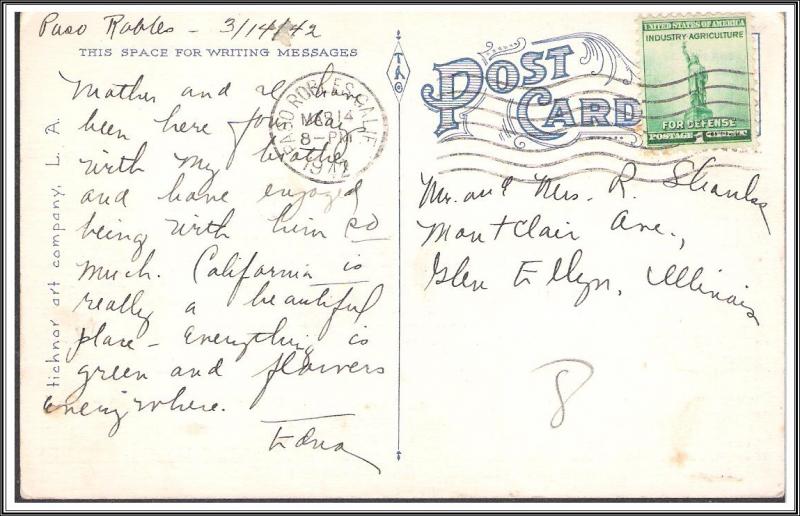 Paso Robles - 3/14/42
THIS SPACE FOR WRITING MESSAGES
Mother and I have
been here for
with my brother
and have enjoyed
being with him so
much. California is
really a beautiful
place - everything is
green and flowers
everywhere.
Edna
tichnor art company, L. A.
TAC
POST CARD
PASO ROBLES, CALIF.
MAR 14
8-PM
1942
UNITED STATES OF AMERICA
INDUSTRY-AGRICULTURE
FOR DEFENSE
POSTAGE 1 CENT
Mr. and Mrs. R. Shanks
Montclair Ave.,
Glen Ellyn, Illinois
8